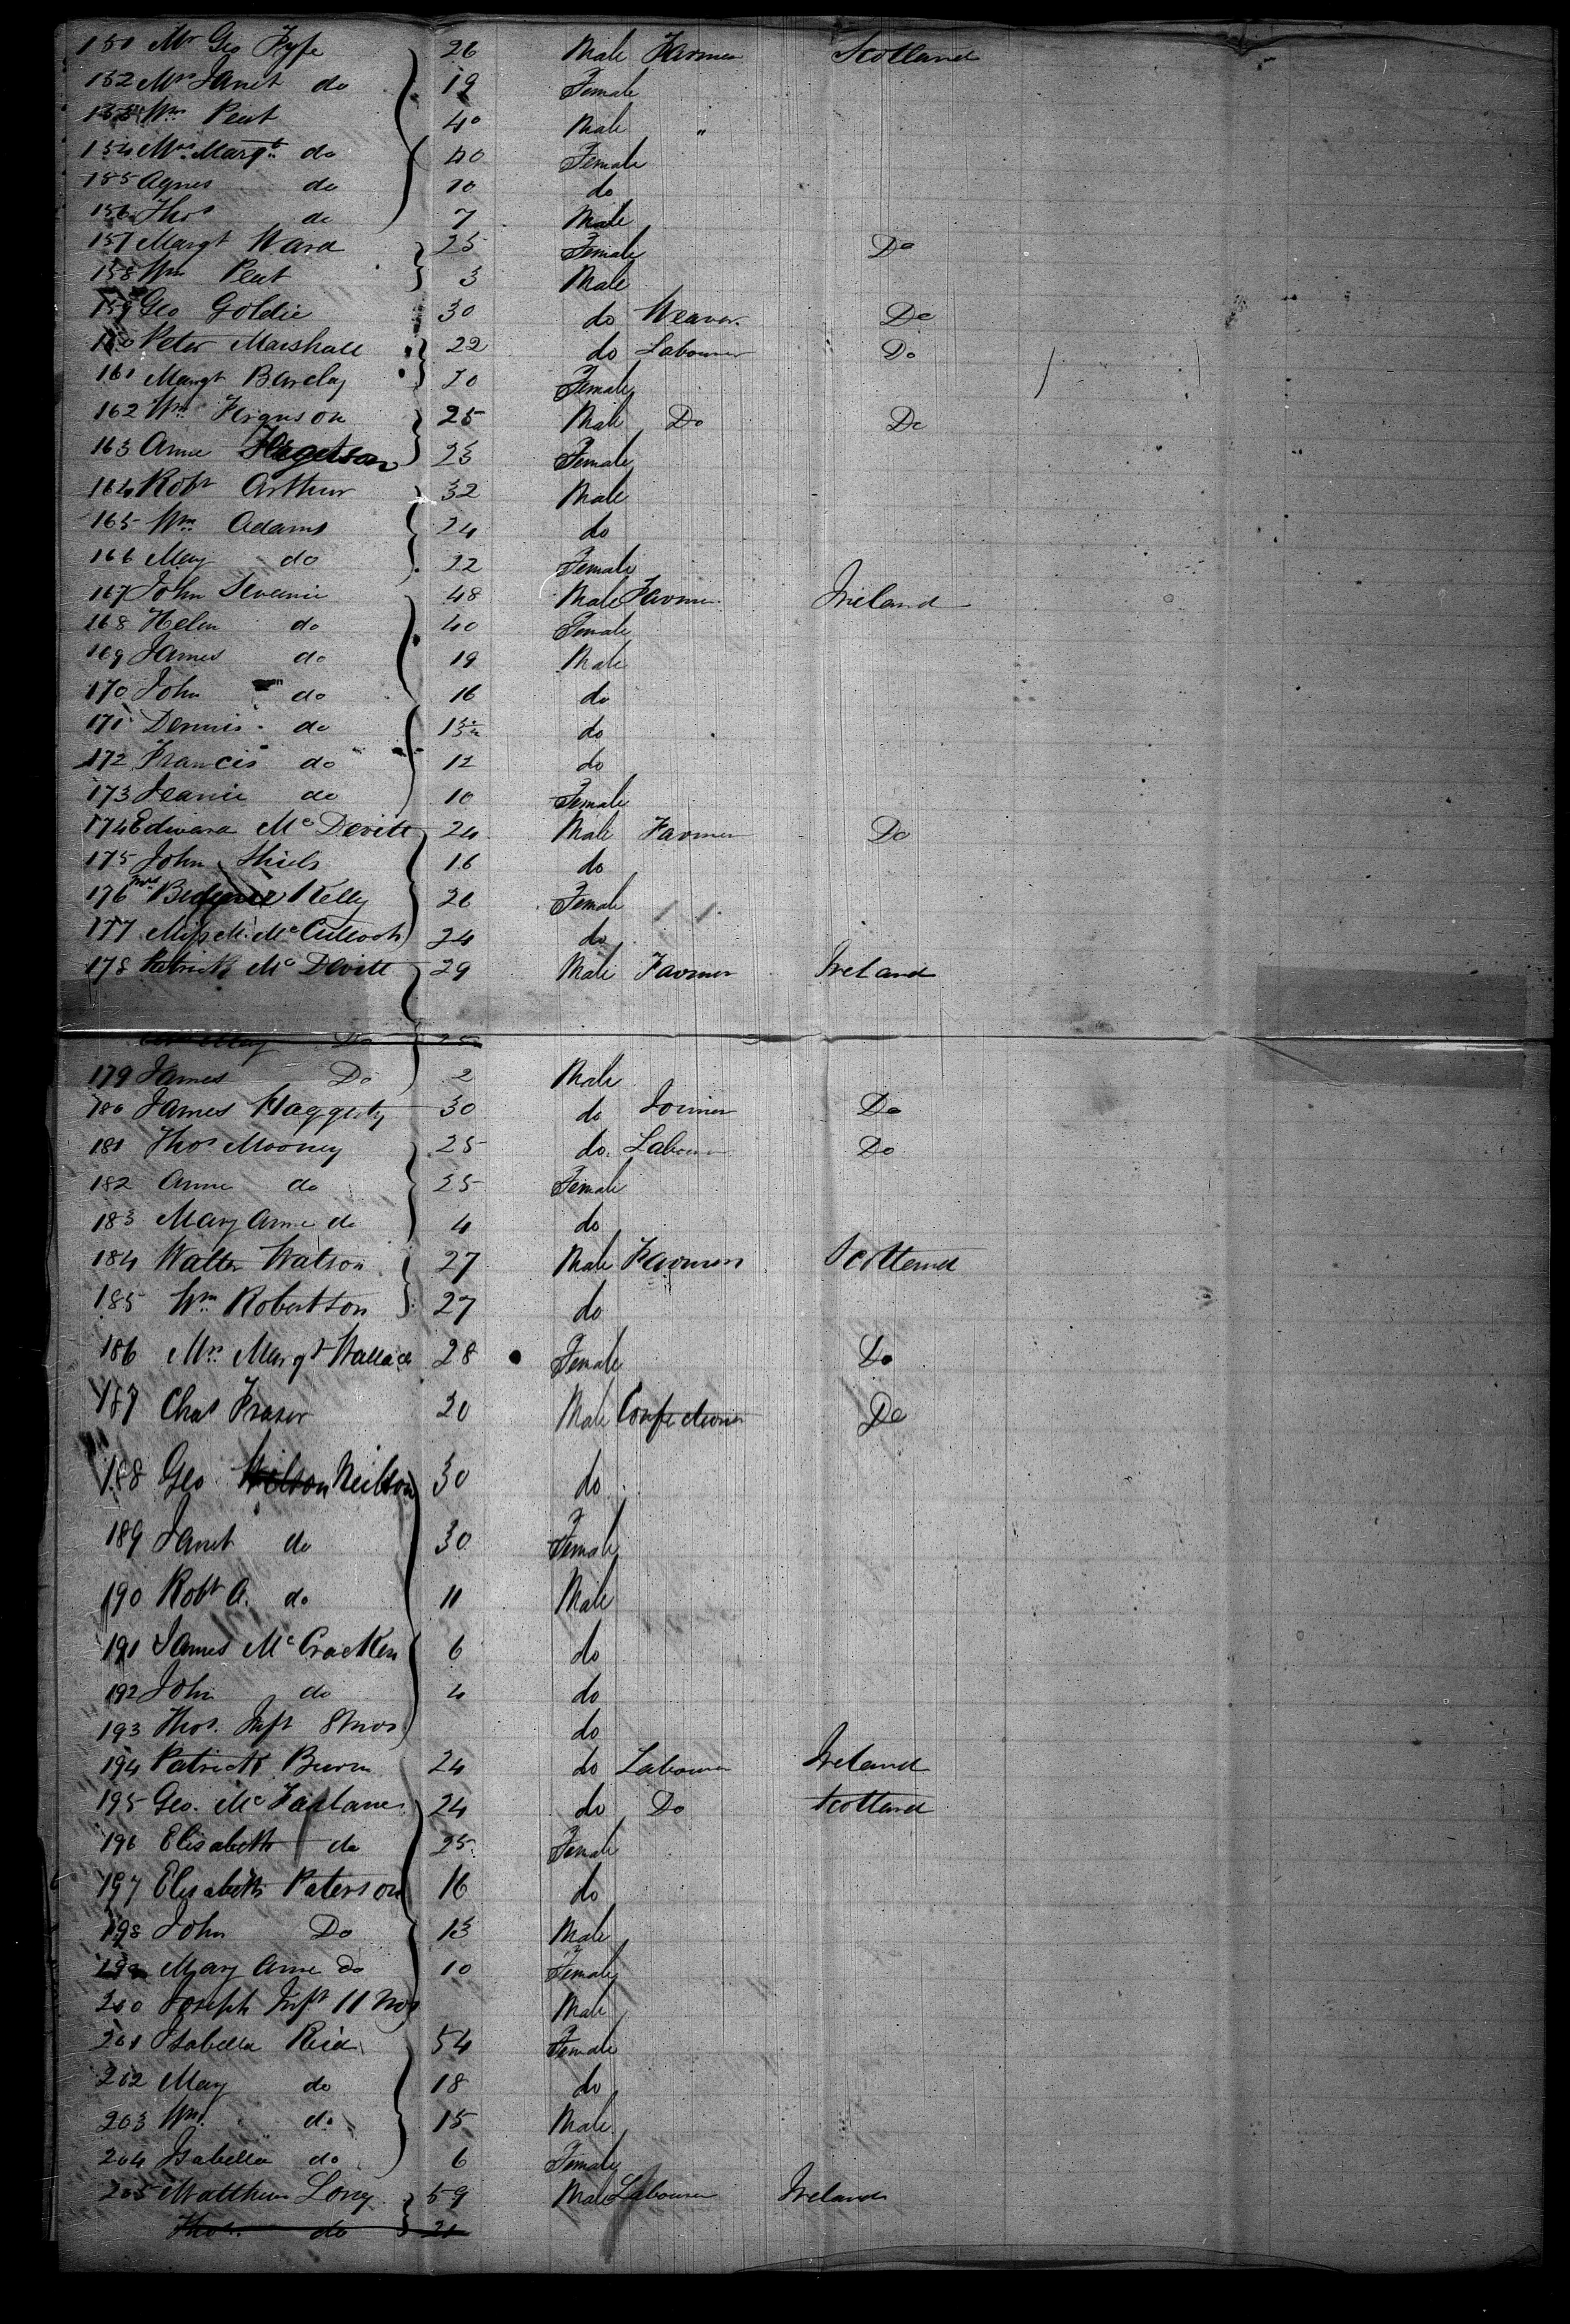 151 Mr Geo Fyfe 26 Male Farmer Scotland
152 Mrs Janet do 19 Female
153 Wm Peat 40 Male "
154 Mrs Margt do 40 Female
155 Agnes do 10 do
156 Thos do 7 Male
157 Margt Ward 25 Female Do
158 Wm Peat 3 Male
159 Geo Goldie 30 do Weaver Do
160 Peter Marshall 22 do Labourer Do
161 Margt Barclay 20 Female
162 Wm Ferguson 25 Male Do Do
163 Anne 23 Female
164 Robt Arthur 32 Male
165 Wm Adams 24 do
166 May do 22 Female
167 John 48 Male Farmer Ireland
168 Helen do 40 Female
169 James do 19 Male
170 John do 16 do
171 Dennis do 13 do
172 Francis do 12 do
173 Jeanie do 10 Female
174 Edward McDevitt 24 Male Farmer Do
175 John Shiels 16 do
176 Mrs Kelly 26 Female
177 Miss M. McCulloch 24 do
178 Patrick McDevitt 29 Male Farmer Ireland
May Do 25
179 James Do 2 Male
180 James Haggerty 30 do Joiner Do
181 Thos Mooney 25 do Labourer Do
182 Anne do 25 Female
183 Mary Anne do 4 do
184 Walter Watson 27 Male Farmers Scotland
185 Wm Robertson 27 do
186 Mrs Margt Wallace 28 Female Do
187 Chas Fraser 20 Male Confectioner Do
188 Geo Wilson Neilson 30 do
189 Janet do 30 Female
190 Robt A. do 11 Male
191 James McCracken 6 do
192 John do 4 do
193 Thos. Inft 8 mos do
194 Patrick Burn 24 do Labourer Ireland
195 Geo. McFarlane 24 do Do Scotland
196 Elisabeth do 25 Female
197 Elisabeth Paterson 16 do
198 John Do 13 Male
199 Mary Anne Do 10 Female
200 Joseph Inft 11 mos Male
201 Isabella Reid 54 Female
202 May do 18 do
203 Wm. do 15 Male
204 Isabella do 6 Female
205 Matthew Long 59 Male Labourer Ireland
Thos. do 21